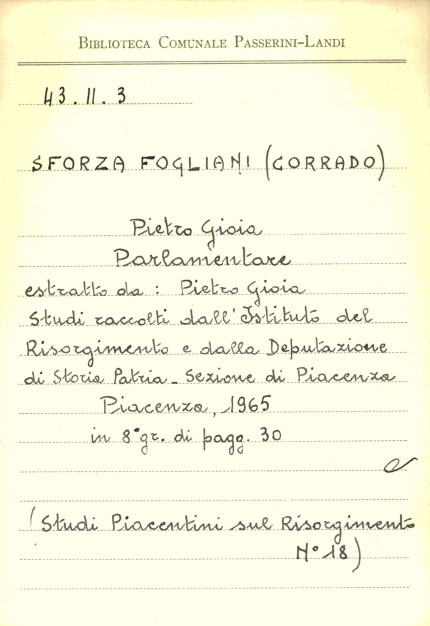 BIBLIOTECA COMUNALE PASSERINI-LANDI
43.II.3
SFORZA FOGLIANI (CORRADO)
Pietro Gioia
Parlamentare
estratto da: Pietro Gioia
Studi raccolti dall'Istituto del
Risorgimento e dalla Deputazione
di Storia Patria - Sezione di Piacenza
Piacenza, 1965
in 8° gr. di pagg. 30
(Studi Piacentini sul Risorgimento
N° 18)